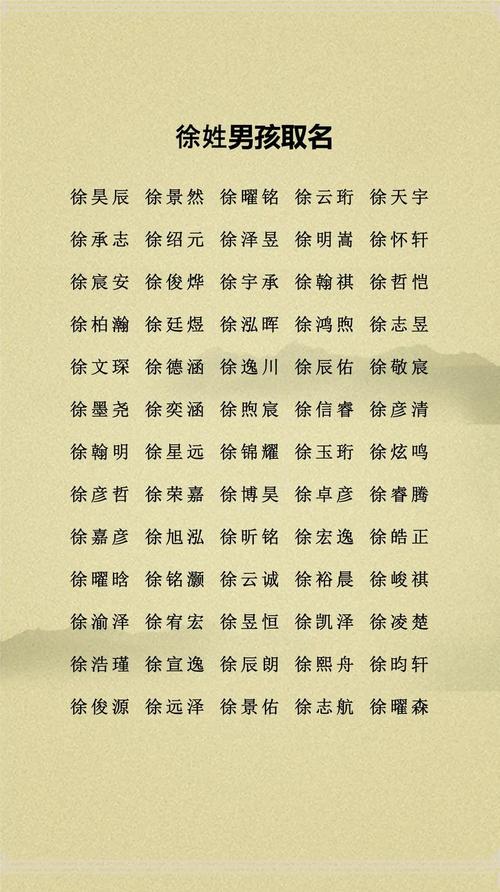 徐姓男孩取名
徐昊辰 徐景然 徐曜铭 徐云珩 徐天宇
徐承志 徐绍元 徐泽昱 徐明嵩 徐怀轩
徐宸安 徐俊烨 徐宇承 徐翰祺 徐哲恺
徐柏瀚 徐廷煜 徐泓晖 徐鸿煦 徐志昱
徐文琛 徐德涵 徐逸川 徐辰佑 徐敬宸
徐墨尧 徐奕涵 徐煦宸 徐信睿 徐彦清
徐翰明 徐星远 徐锦耀 徐玉珩 徐炫鸣
徐彦哲 徐荣嘉 徐博昊 徐卓彦 徐睿腾
徐嘉彦 徐旭泓 徐昕铭 徐宏逸 徐皓正
徐曜晗 徐铭灏 徐云诚 徐裕晨 徐峻祺
徐渝泽 徐宥宏 徐昱恒 徐凯泽 徐凌楚
徐浩瑾 徐宣逸 徐辰朗 徐熙舟 徐昀轩
徐俊源 徐远泽 徐景佑 徐志航 徐曜森